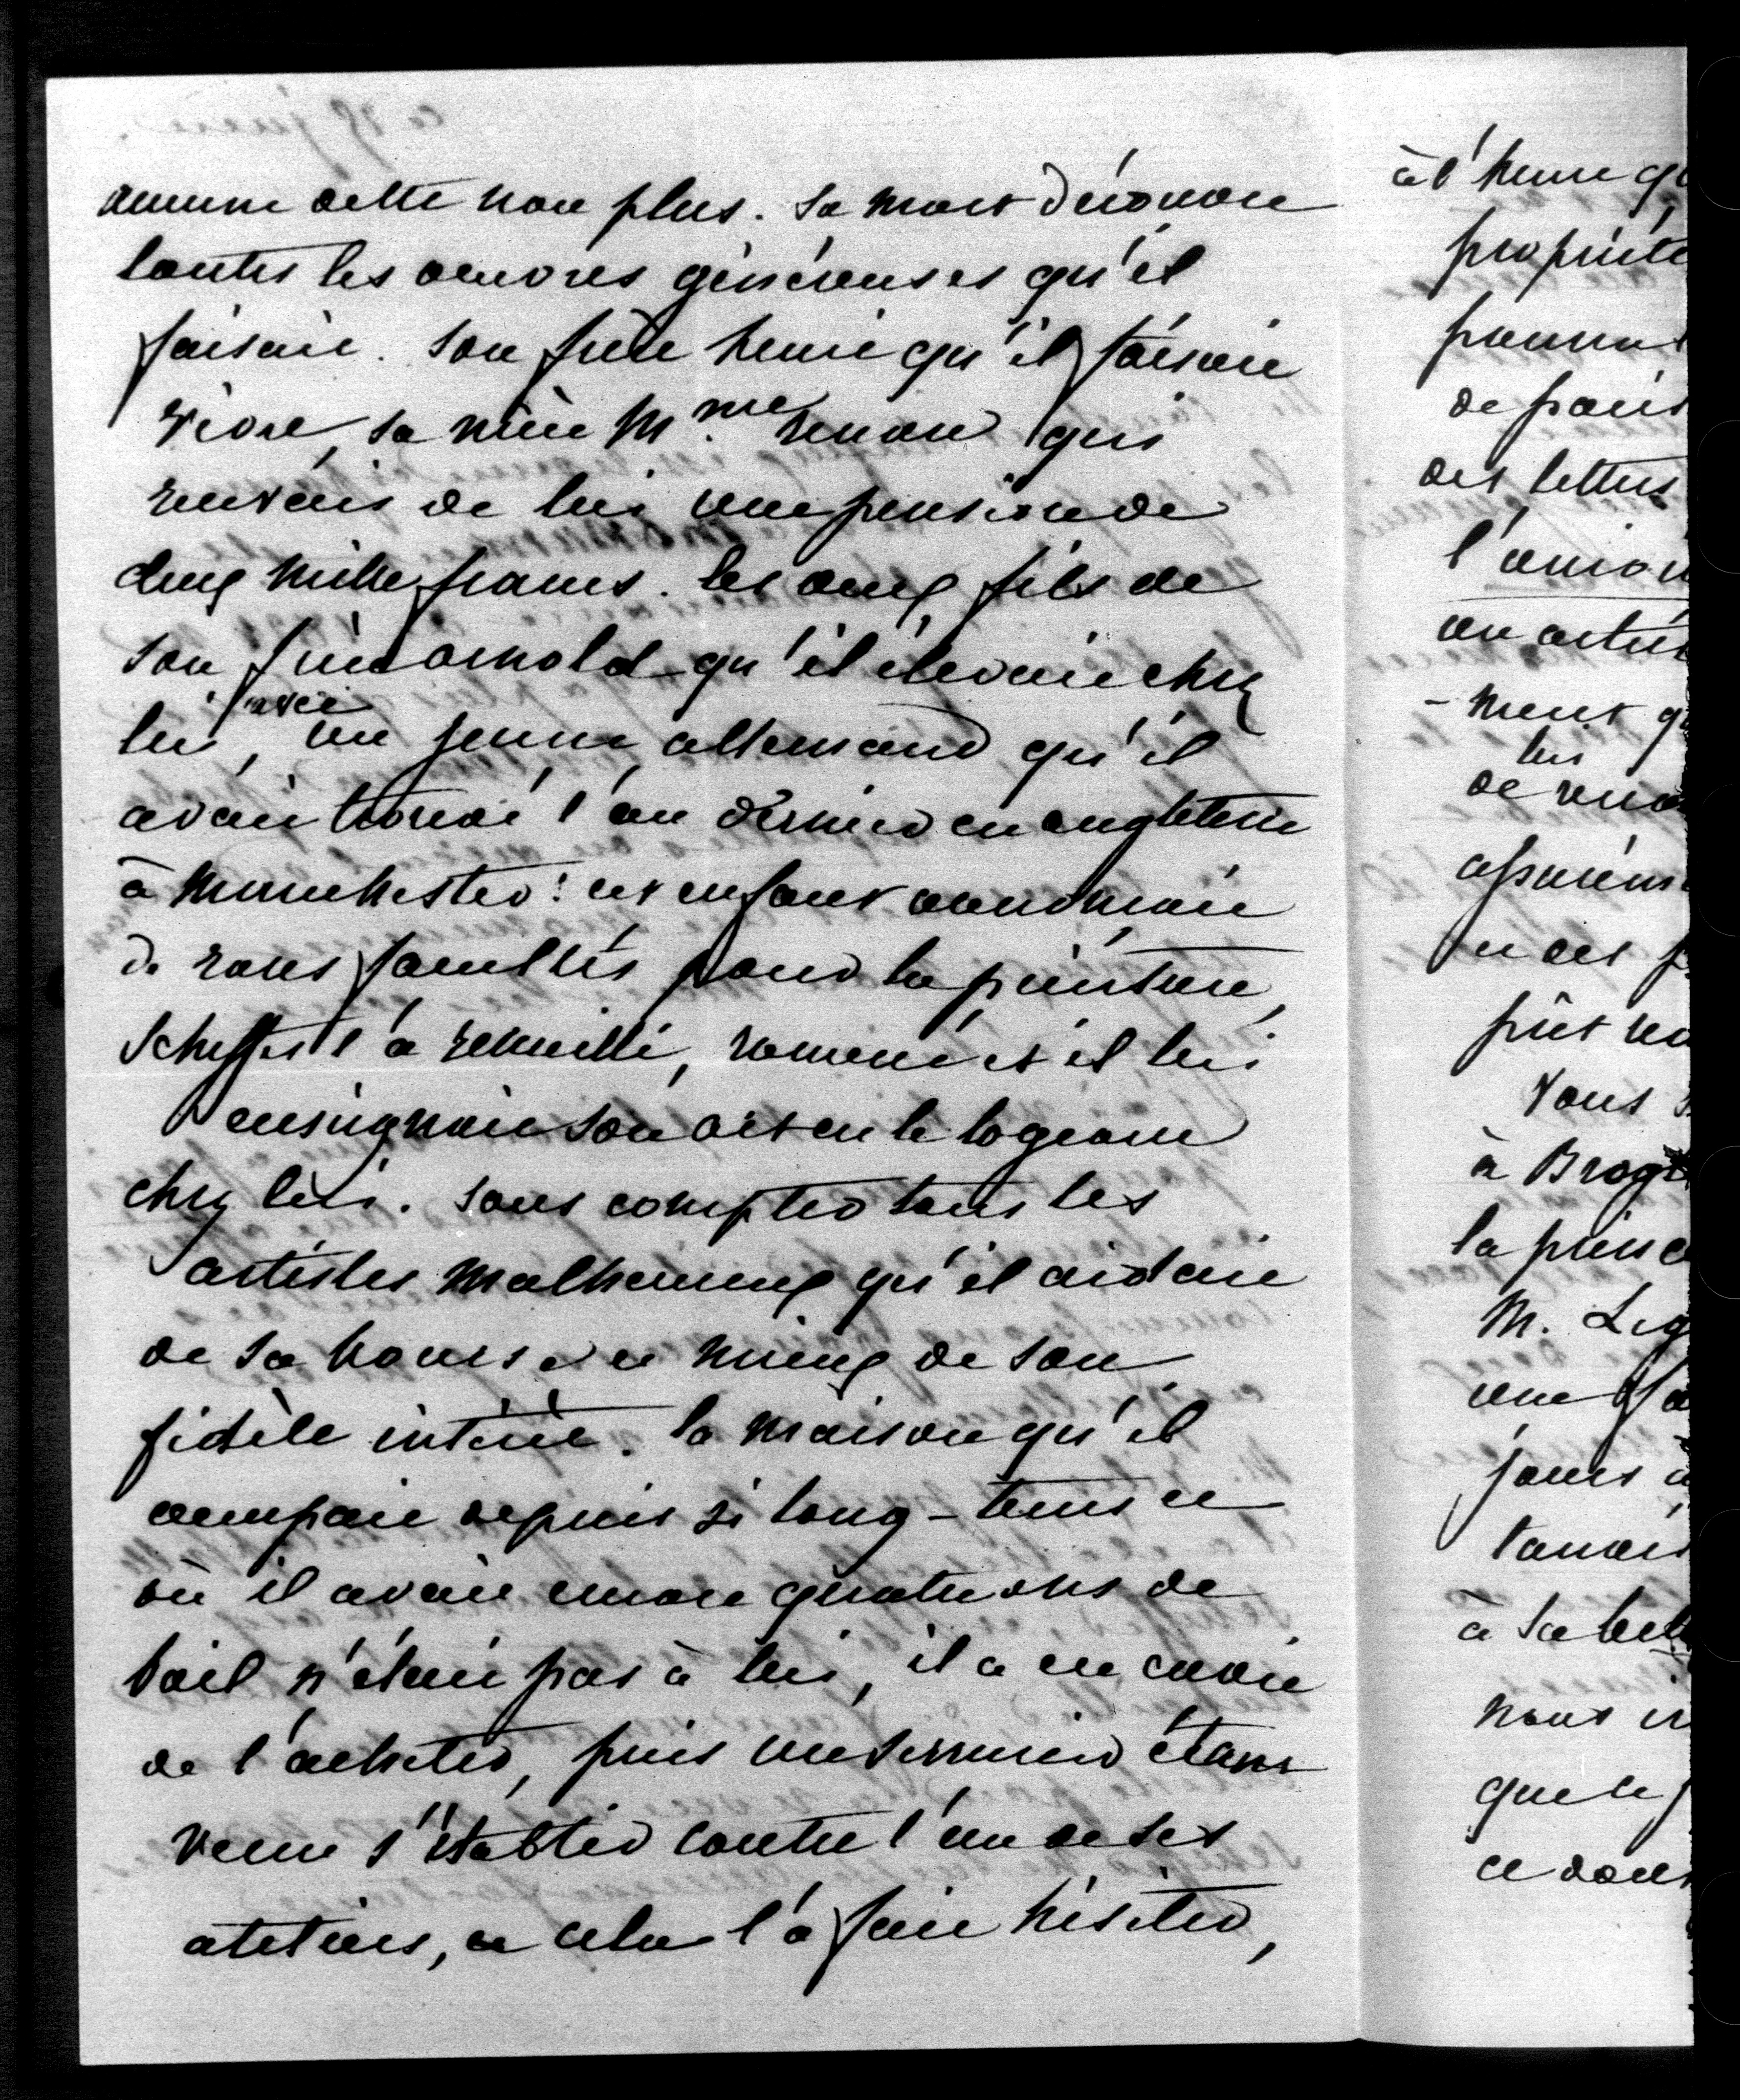 aucune dette non plus. Sa mort découvre
toutes les œuvres généreuses qu'il
faisait. Son frère henri qu'il faisait
vivre, sa nièce Mme renan qui
recevais de lui une pension de
deux mille francs. les deux fils de
son frère arnold qu'il élevait chez
lui, avec un jeune allemand qu'il
avait trouvé l'an dernier en angleterre
à Manchester : cet enfant annonçait
de rares facultés pour la peinture,
Scheffer l'a recueilli, ramené et il lui
enseignait son art en le logeant
chez lui. Sans compter tous les
artistes malheureux qu'il aidait
de sa bourse et mieux de son
fidèle intérêt. la maison qu'il
occupait depuis si long-tems et
où il avait encore quatre ans de
bail n'était pas à lui, il a eu envie
de l'acheter, puis un serrurier étant
venu s'établir contre l'un de ses
ateliers, et cela l'a fait hésiter,
à l'heure qu
propriété
de paris
des lettres
l'union
un article
- ment qu
lui
de
en ces
pût
Vous
à Brogl
la prince
M.
une
jours
à sa bell
nous ir
que le
ce dont